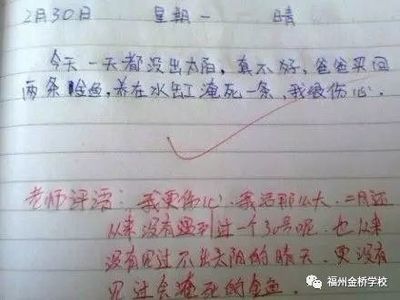 2月30日 星期一 晴
今天一天都没出太阳，真不好，爸爸买回
两条金鱼，养在水缸淹死一条，我很伤心。
老师评语：我更伤心！我活那么大，二月还
从来没有遇到过一个30号呢，也从来
没有见过不出太阳的晴天，更没有
见过会淹死的金鱼。
福州金桥学校